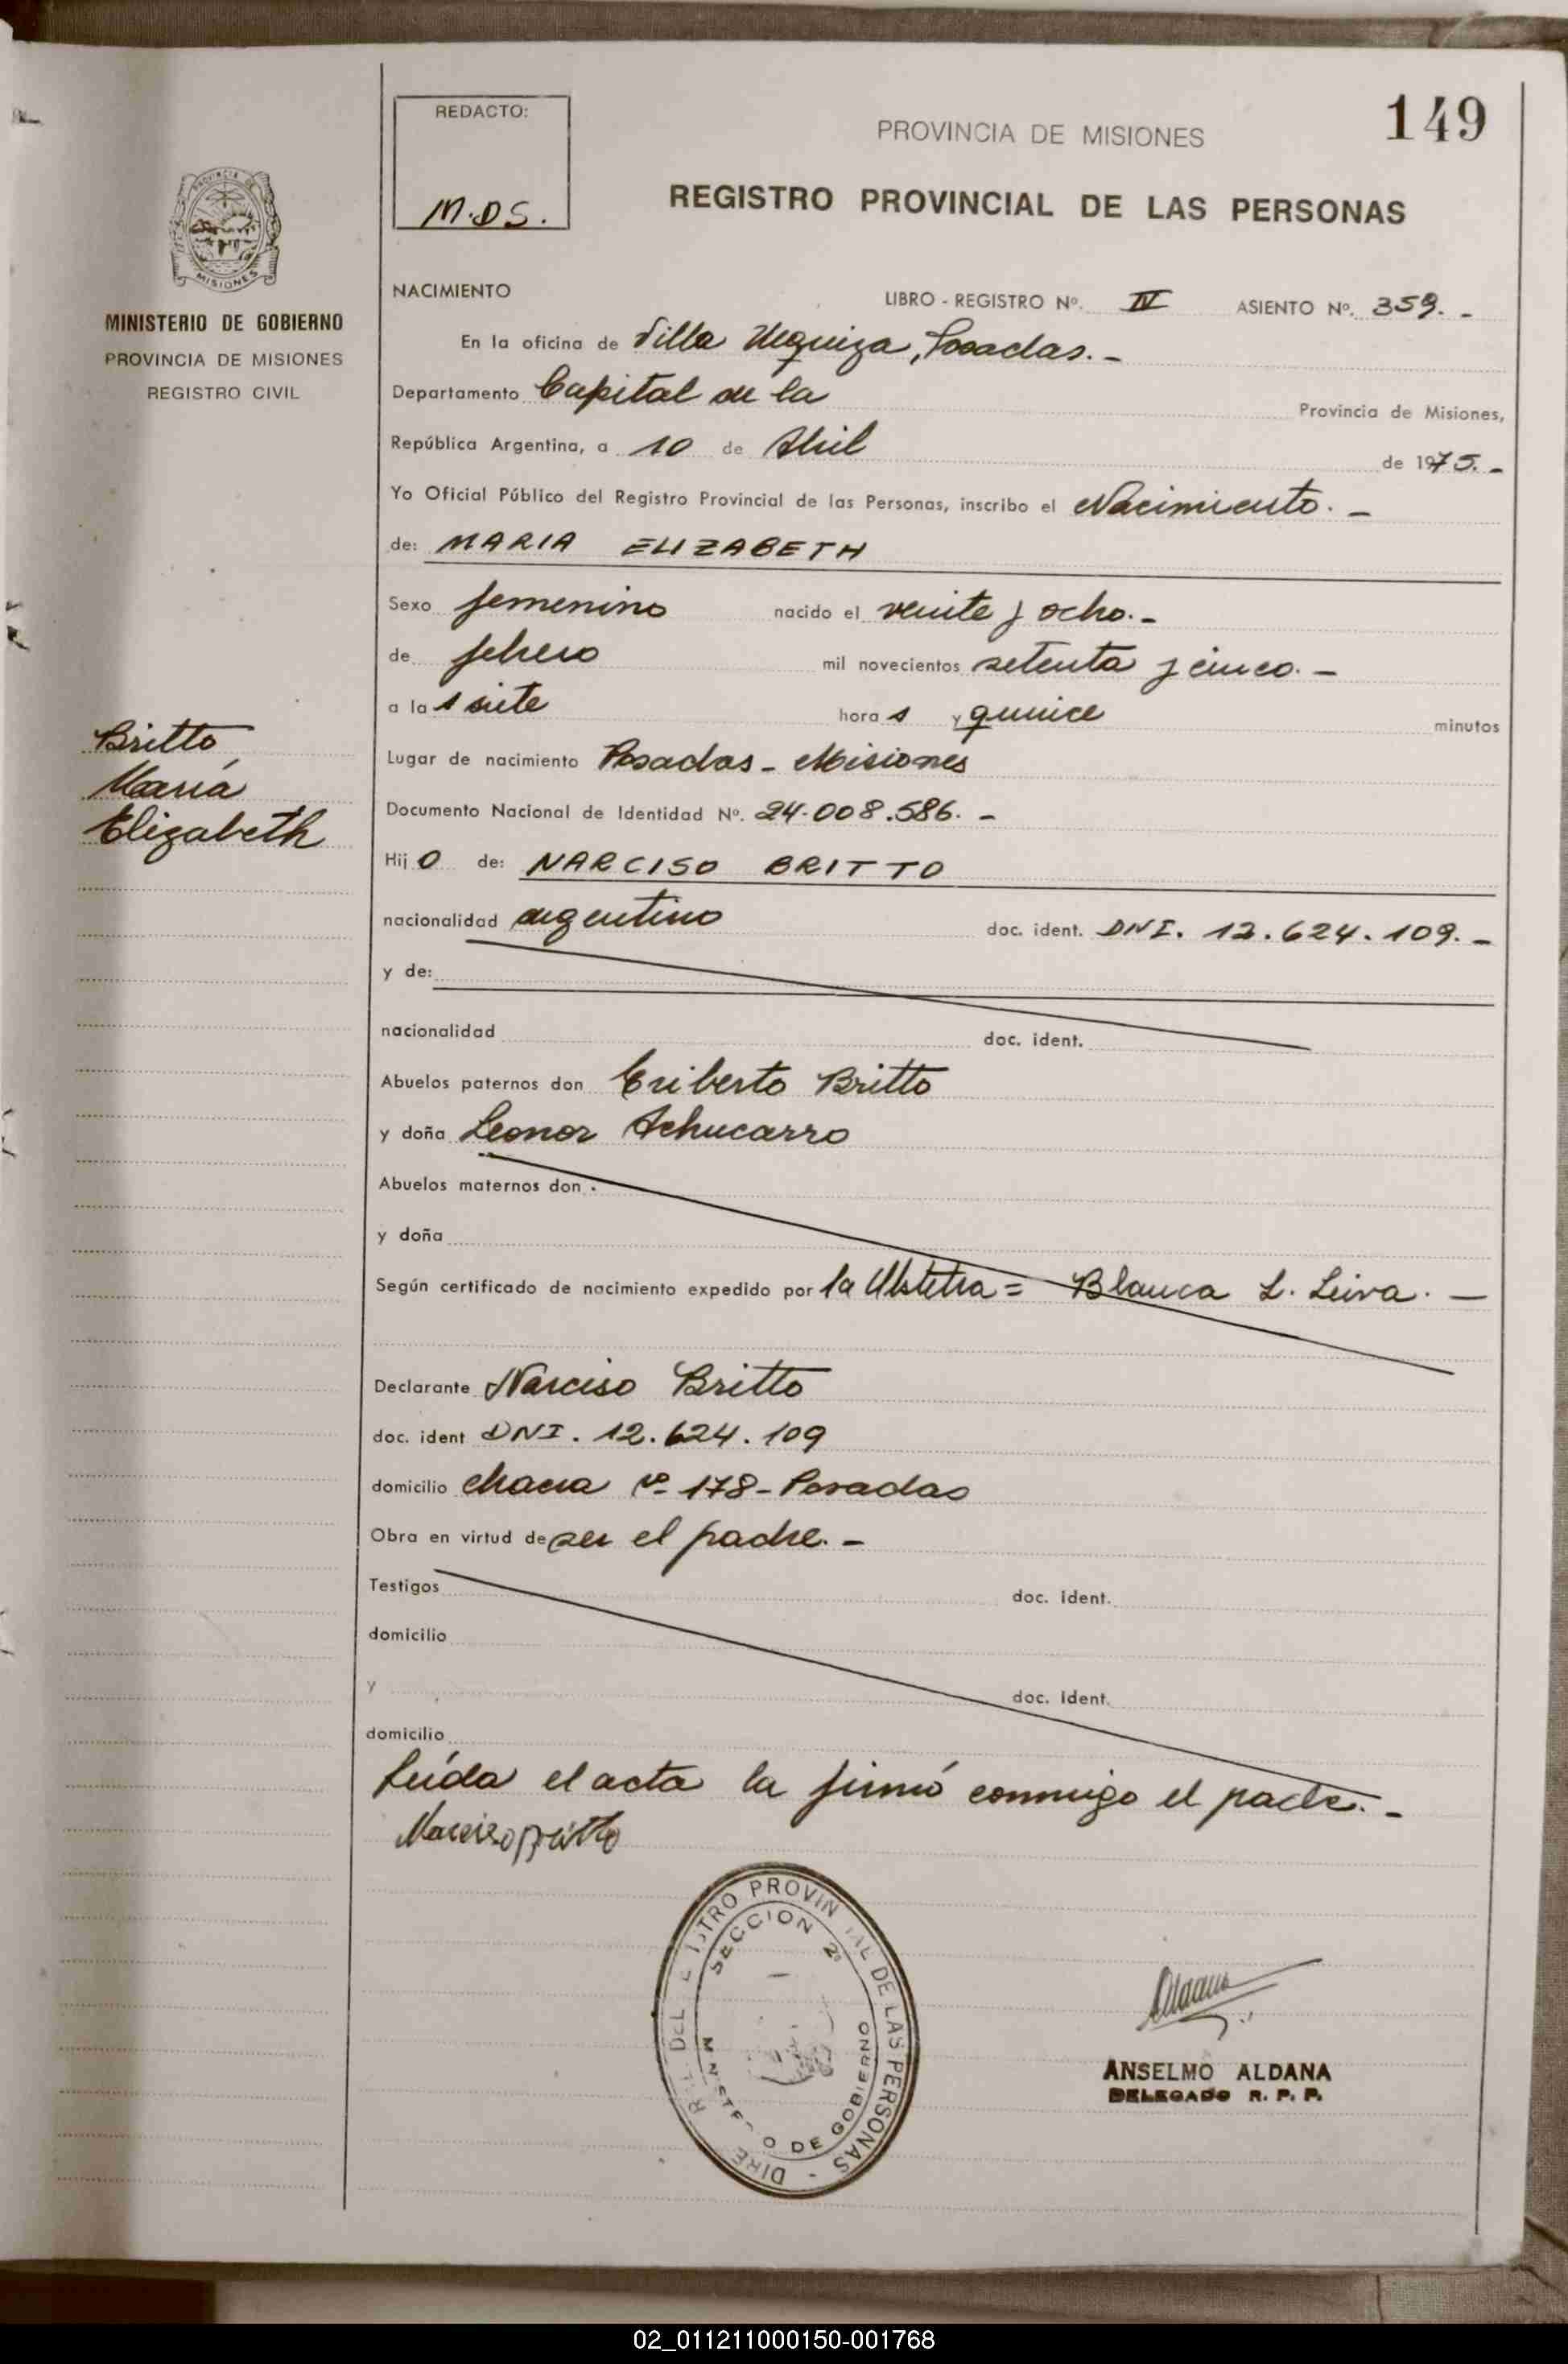 149
REDACTO:
M.DS.
PROVINCIA DE MISIONES
REGISTRO PROVINCIAL DE LAS PERSONAS
PROVINCIA DE
MISIONES
MINISTERIO DE GOBIERNO
PROVINCIA DE MISIONES
REGISTRO CIVIL
Britto
María
Elizabeth
NACIMIENTO LIBRO - REGISTRO Nº. IV ASIENTO Nº. 359. -
En la oficina de Villa Urquiza, Posadas. -
Departamento Capital de la Provincia de Misiones,
República Argentina, a 10 de Abril de 1975. -
Yo Oficial Público del Registro Provincial de las Personas, inscribo el Nacimiento. -
de: MARIA ELIZABETH
Sexo femenino nacido el veinte y ocho. -
de febrero mil novecientos setenta y cinco. -
a las siete horas y quince minutos
Lugar de nacimiento Posadas - Misiones
Documento Nacional de Identidad Nº. 24.008.586. -
Hijo de: NARCISO BRITTO
nacionalidad argentino doc. ident. DNI. 12.624.109. -
y de:
nacionalidad doc. ident.
Abuelos paternos don Eriberto Britto
y doña Leonor Achucarro
Abuelos maternos don
y doña
Según certificado de nacimiento expedido por la Obstetra = Blanca L. Leiva. -
Declarante Narciso Britto
doc. ident DNI. 12.624.109
domicilio chacra Nº 178 - Posadas
Obra en virtud de ser el padre. -
Testigos doc. Ident.
domicilio
y doc. Ident.
domicilio
Leída el acta la firmó conmigo el padre. -
Narciso Britto
SECCION 2º
DE LAS PERSONAS
DE GOBIERNO
ANSELMO ALDANA
DELEGADO R. P. P.
02_011211000150-001768